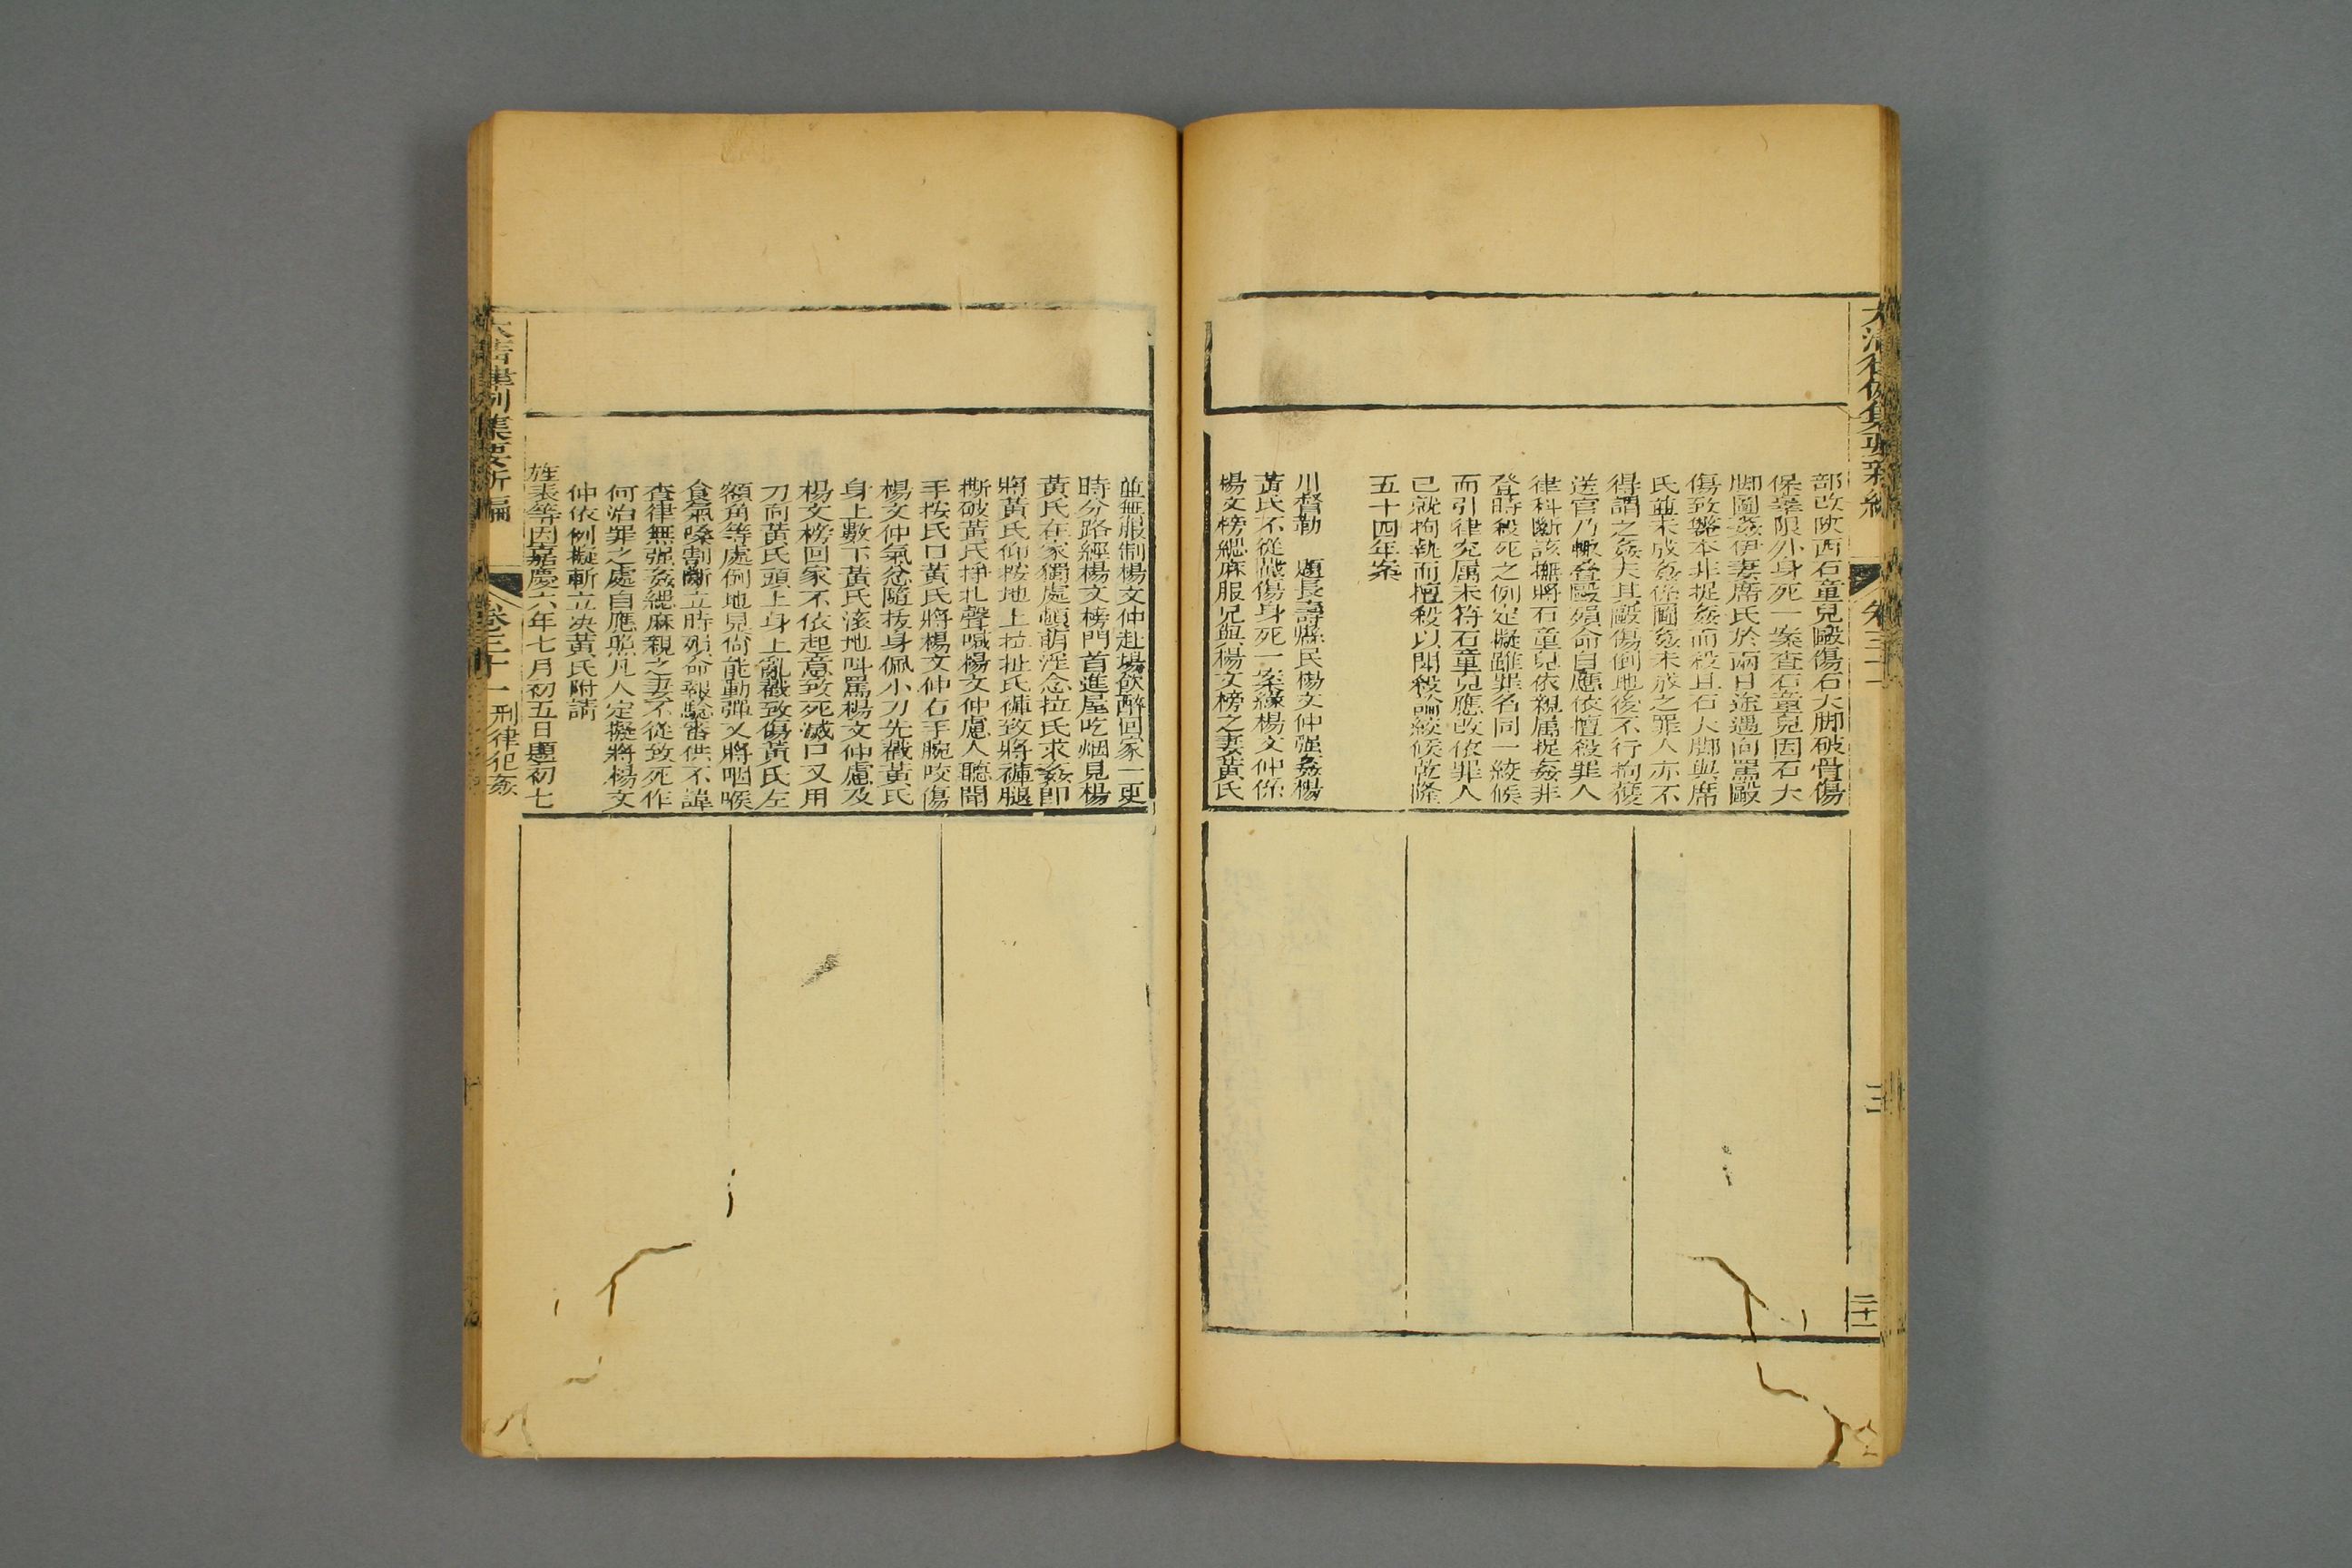 大清律例集要新編
卷三十一
三
二十一
部改陜西石童兒毆傷石大脚破骨傷
保辜限外身死一案查石童兒因石大
脚圖姦伊妻席氏於兩日途遇向罵毆
傷致斃本非捉姦而殺且石大脚與席
氏並未成姦係圖姦未成之罪人亦不
得謂之姦夫其毆傷倒地後不行拘獲
送官乃輙叠毆殞命自應依擅殺罪人
律科斷該撫將石童兒依親属捉姦非
登時殺死之例定擬雖罪名同一絞候
而引律究属未符石童兒應改依罪人
已就拘執而擅殺以鬪殺論絞候乾隆
五十四年案
川督勒 題長壽縣民楊文仲强姦楊
黃氏不從戳傷身死一案緣楊文仲係
楊文榜緦麻服兄與楊文榜之妻黃氏
並無服制楊文仲赴塲飲醉回家一更
時分路經楊文榜門首進屋吃烟見楊
黃氏在家獨處頓萌淫念拉氏求姦即
將黃氏仰按地上拉扯氏褲致將褲腿
撕破黃氏掙扎聲喊楊文仲慮人聽聞
手按氏口黃氏將楊文仲右手腕咬傷
楊文仲氣忿隨拔身佩小刀先戳黃氏
身上數下黃氏滚地呌罵楊文仲慮及
楊文榜回家不依起意致死滅口又用
刀向黃氏頭上身上亂戳致傷黃氏左
額角等處倒地見尙能動彈又將咽喉
食氣嗓割斷立時殞命報驗審供不諱
查律無强姦緦麻親之妻不從致死作
何治罪之處自應照凡人定擬將楊文
仲依例擬斬立决黃氏附請
旌表等因嘉慶六年七月初五日題初七
大清律例集要新編
卷三十一 刑律犯姦